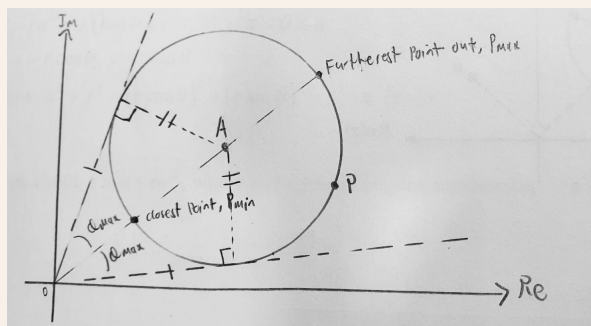 Im
Furtherest Point out, Pmax
A
P
closest Point, Pmin
θmax
θmax
O
Re